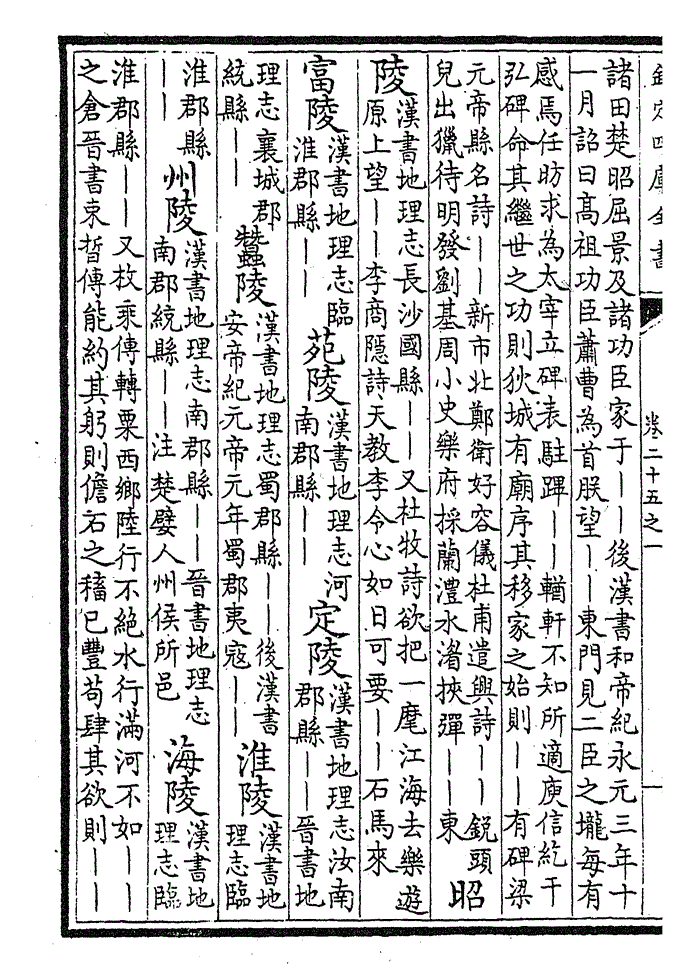 欽定四庫全書
卷二十五之一
諸田楚昭屈景及諸功臣家于丨丨後漢書和帝紀永元三年十
一月詔曰高祖功臣蕭曹為首朕望丨丨東門見二臣之壠每有
感焉任昉求為太宰立碑表駐蹕丨丨輶軒不知所適庾信紇干
弘碑命其繼世之功則狄城有廟序其移家之始則丨丨有碑梁
元帝縣名詩丨丨新市北鄭衛好容儀杜甫遣興詩丨丨銳頭
兒出獵待明發劉基周小史樂府採蘭澧水渚挾彈丨丨東
昭
陵
漢書地理志長沙國縣丨丨又杜牧詩欲把一麾江海去樂遊
原上望丨丨李商隱詩天教李令心如日可要丨丨石馬來
富陵
漢書地理志臨
淮郡縣丨丨
苑陵
漢書地理志河
南郡縣丨丨
定陵
漢書地理志汝南
郡縣丨丨晉書地
理志襄城郡
統縣丨丨
蠶陵
漢書地理志蜀郡縣丨丨後漢書
安帝紀元帝元年蜀郡夷寇丨丨
淮陵
漢書地
理志臨
淮郡縣
丨丨
州陵
漢書地理志南郡縣丨丨晉書地理志
南郡統縣丨丨注楚嬖人州侯所邑
海陵
漢書地
理志臨
淮郡縣丨丨又枚乘傳轉粟西鄉陸行不絕水行滿河不如丨丨
之倉晉書束晳傳能約其躬則儋石之穡已豐苟肆其欲則丨丨